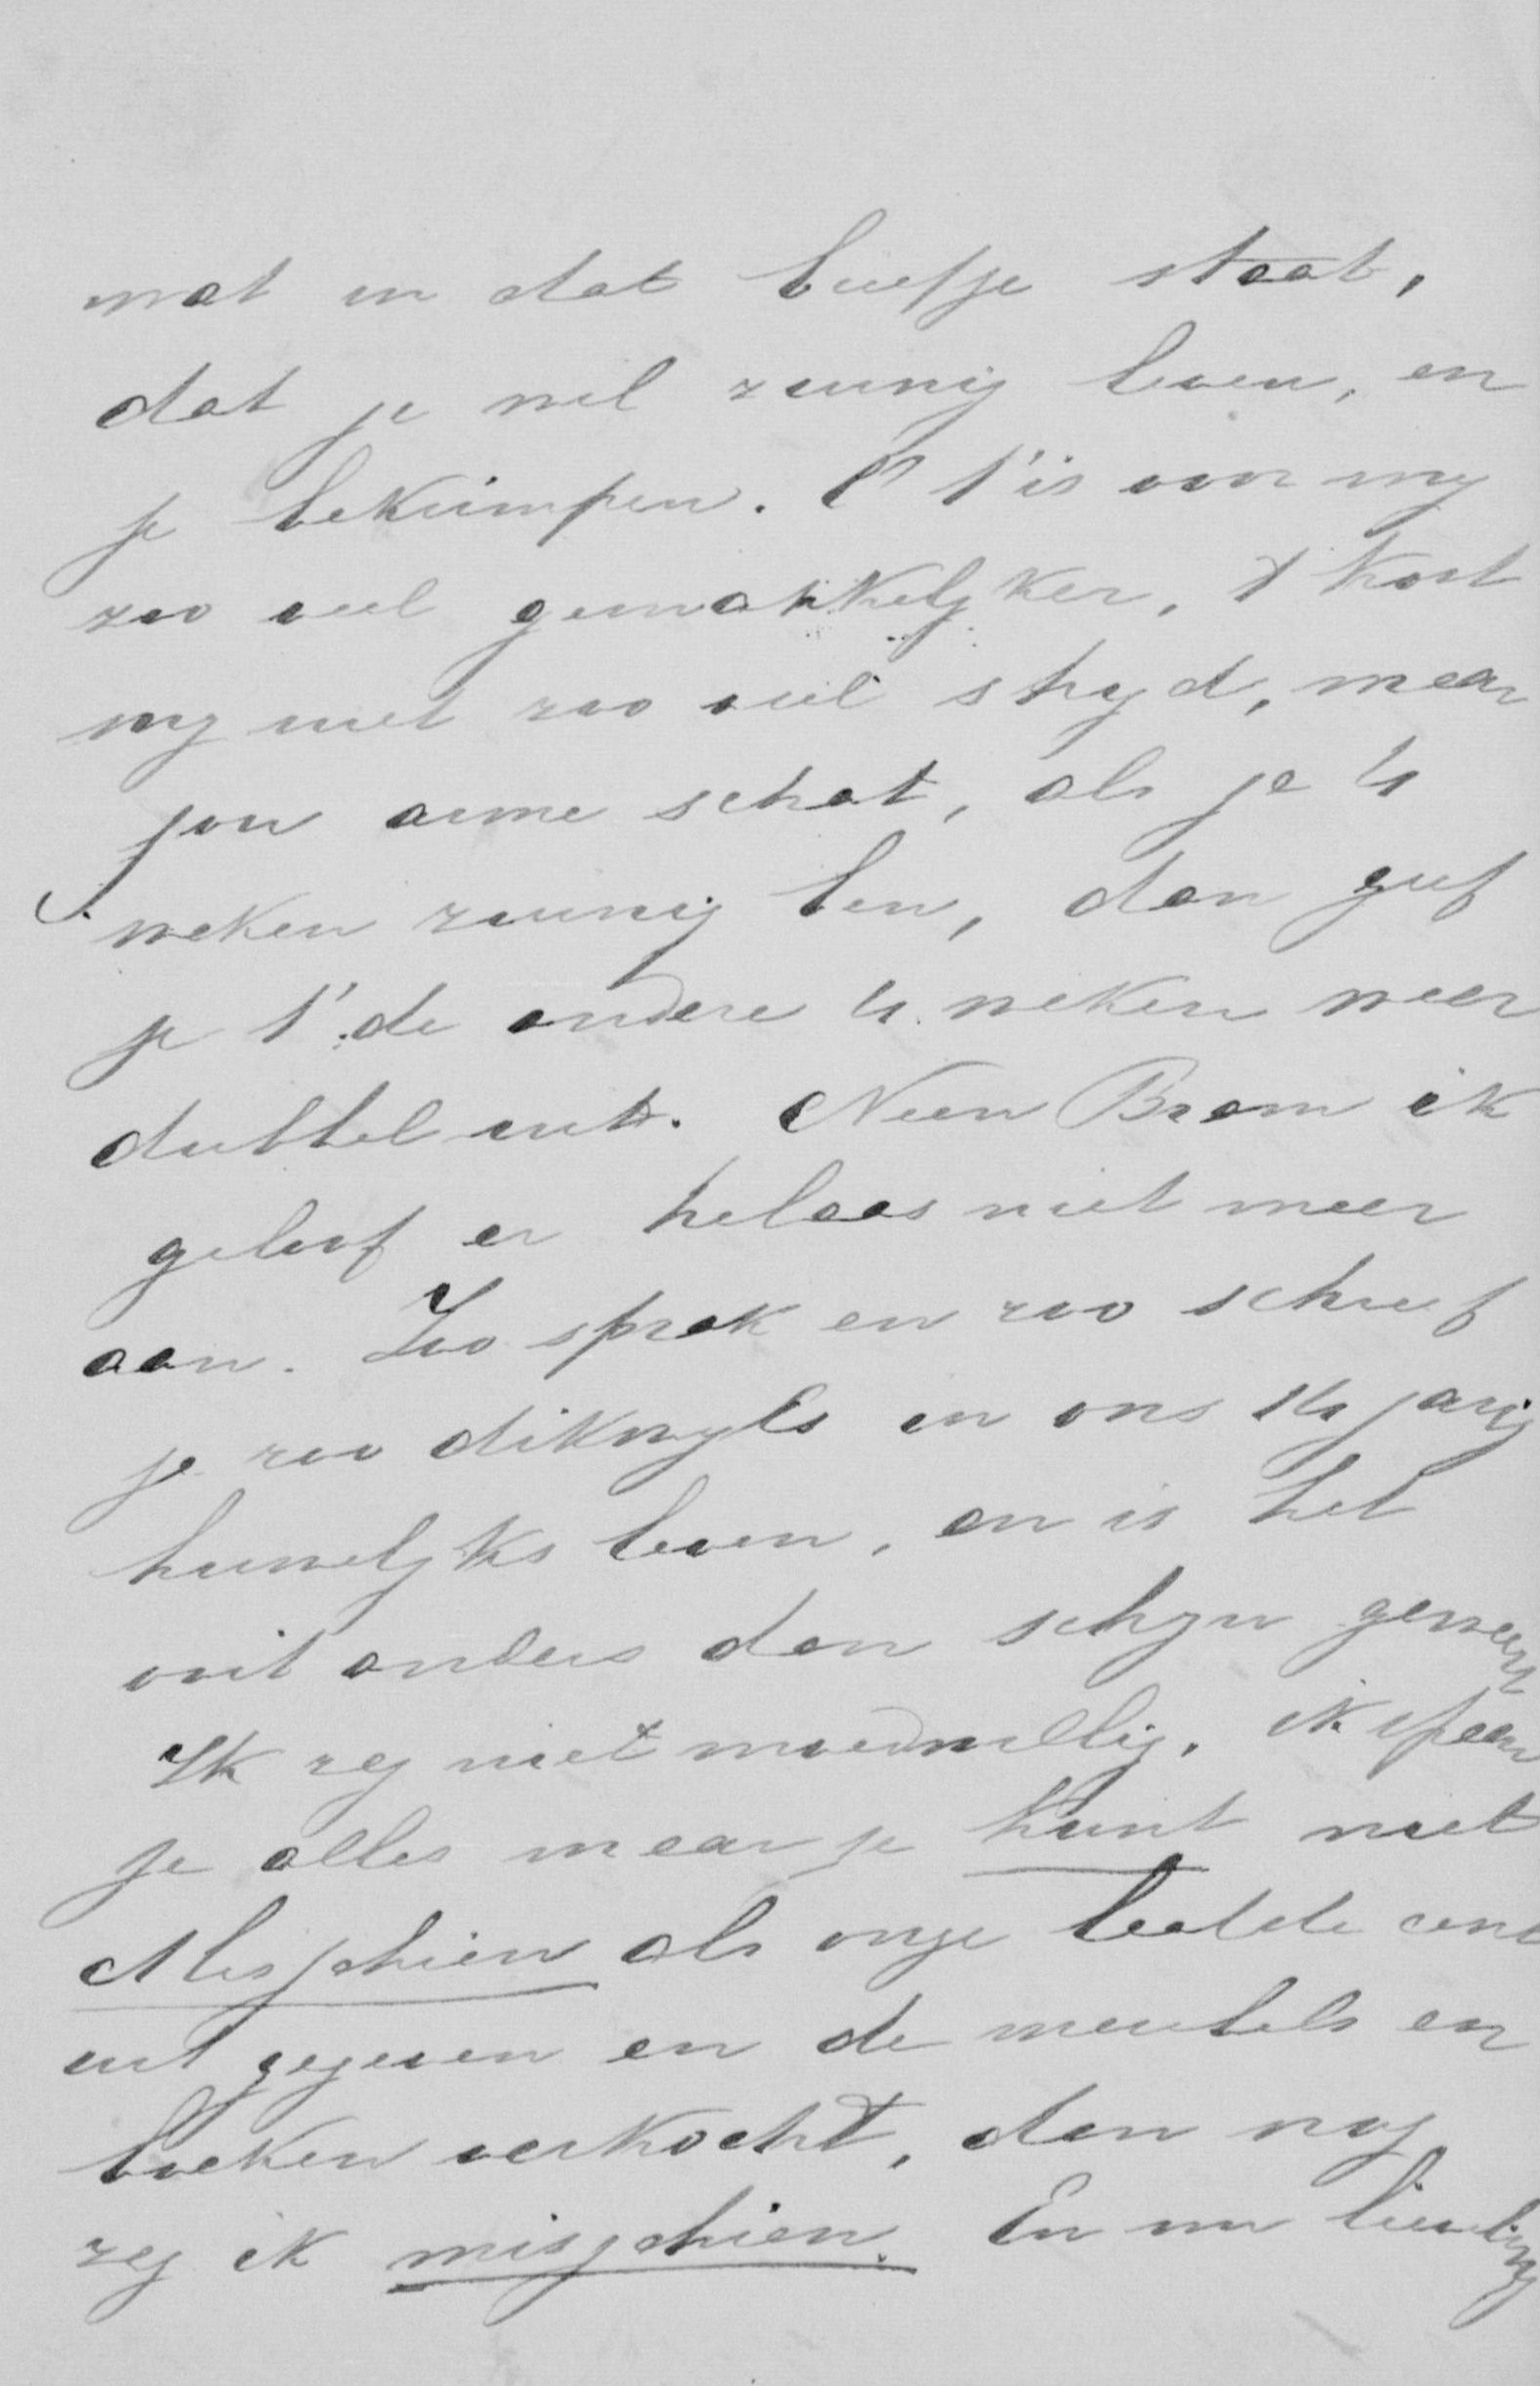 wat in dat briefje staat,
dat je wil zuinig leven, en
je bekrimpen. O t'is voor my
zoo veel gemakkelyker, 't kost
my niet zoo veel stryd, maar
jou arme schat, als je 4
weken zuinig ben, dan geef
je t' de andere 4 weken weer
dubbel uit. Neen Bram ik
geloof er helaas niet meer
aan. Zoo sprak en zoo schreef
je zoo dikwyls in ons 14 jarig
huwelyks leven, en is het
ooit anders dan schyn geweest
Ik zeg niet moedwillig, ik
je alles maar je kunt niet
Misschien als onze laatste cent
uit gegeven en de meubels en
boeken verkocht, dan nog
zeg ik misschien. En nu lieveling